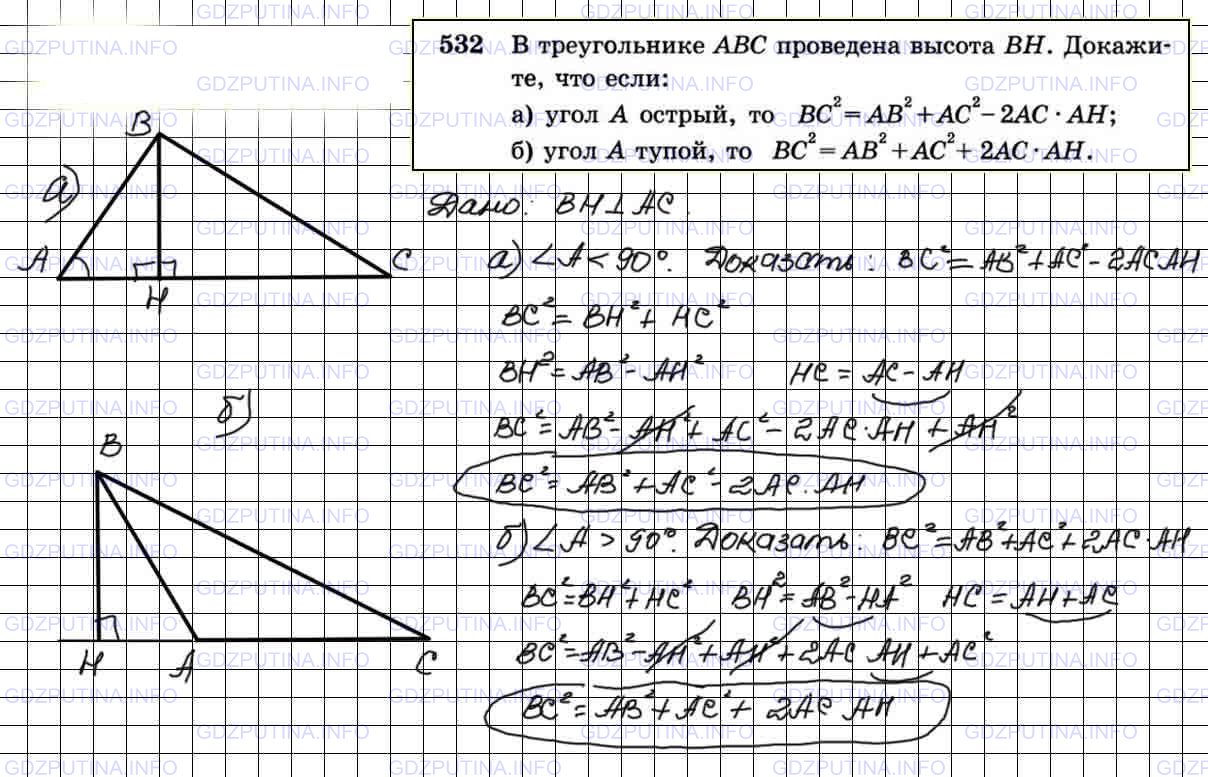 GDZPUTINA.INFO
532 В треугольнике ABC проведена высота BH. Докажи-
те, что если:
а) угол A острый, то BC² = AB² + AC² – 2AC · AH;
б) угол A тупой, то BC² = AB² + AC² + 2AC · AH.
а)
B
A
H
C
Дано: BH⊥AC.
а) ∠A < 90°. Доказать: BC² = AB² + AC² - 2ACAH
BC² = BH² + HC²
BH² = AB² - AH² HC = AC - AH
BC² = AB² - AH² + AC² - 2AC·AH + AH²
BC² = AB² + AC² - 2AC·AH
б)
B
H
A
C
б) ∠A > 90°. Доказать: BC² = AB² + AC² + 2AC·AH
BC² = BH² + HC² BH² = AB² - HA² HC = AH + AC
BC² = AB² - AH² + AH² + 2AC AH + AC²
BC² = AB² + AC² + 2AC AH